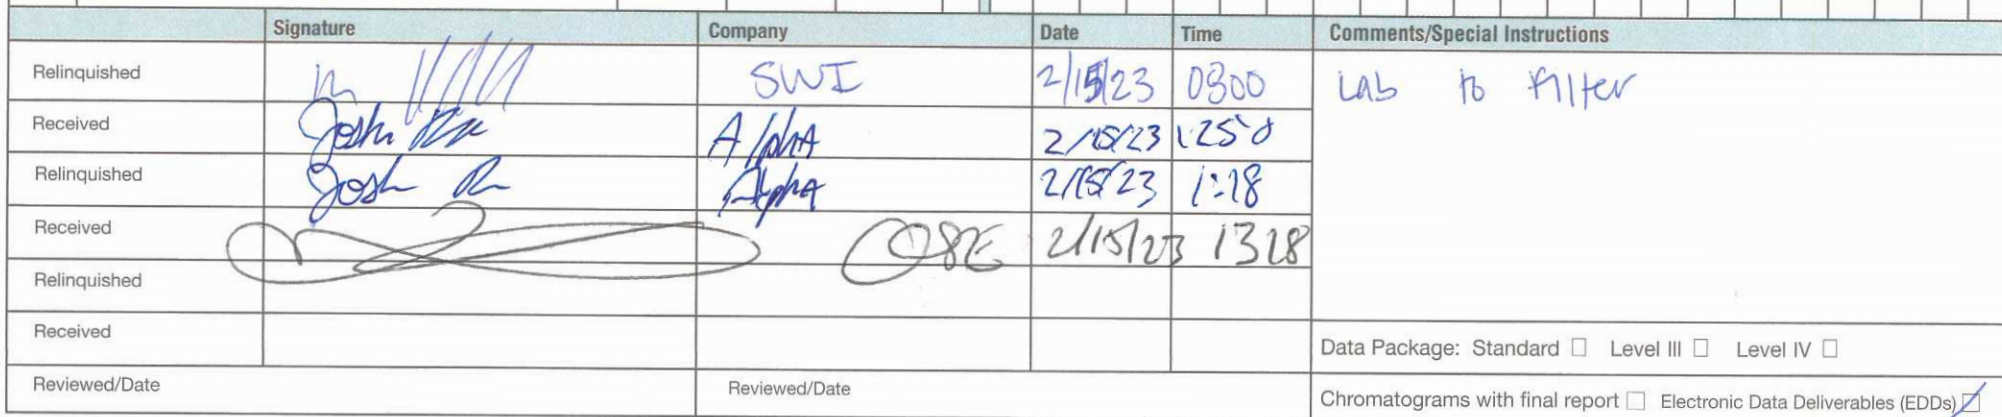 Signature Company Date Time Comments/Special Instructions
Relinquished SWI 2/15/23 0800 Lab to Filter
Received Josh Alpha 2/15/23 1250
Relinquished Josh Alpha 2/15/23 1:18
Received 2/15/23 1328
Relinquished
Received
Data Package: Standard ☐ Level III ☐ Level IV ☐
Reviewed/Date Reviewed/Date
Chromatograms with final report ☐ Electronic Data Deliverables (EDDs) ☑